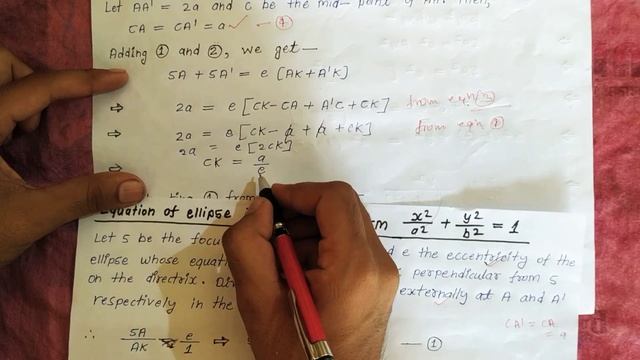 Let AA' = 2a and C be the mid-point of AA'. Then,
CA = CA' = a ✓ — ④
Adding ① and ②, we get—
SA + SA' = e [AK+A'K]
⇒ 2a = e [CK-CA + A'C + CK] from eqn
⇒ 2a = e [CK - a + a + CK] from eqn
2a = e [2CK]
⇒ CK = a/e
① from
Equation of ellipse x²/a² + y²/b² = 1
Let S be the focus d e the eccentricity of the
ellipse whose equat perpendicular from S
on the directrix. externally at A and A'
respectively in the
CA' = CA
= a
∴ SA/AK = e/1 ⇒ — ①